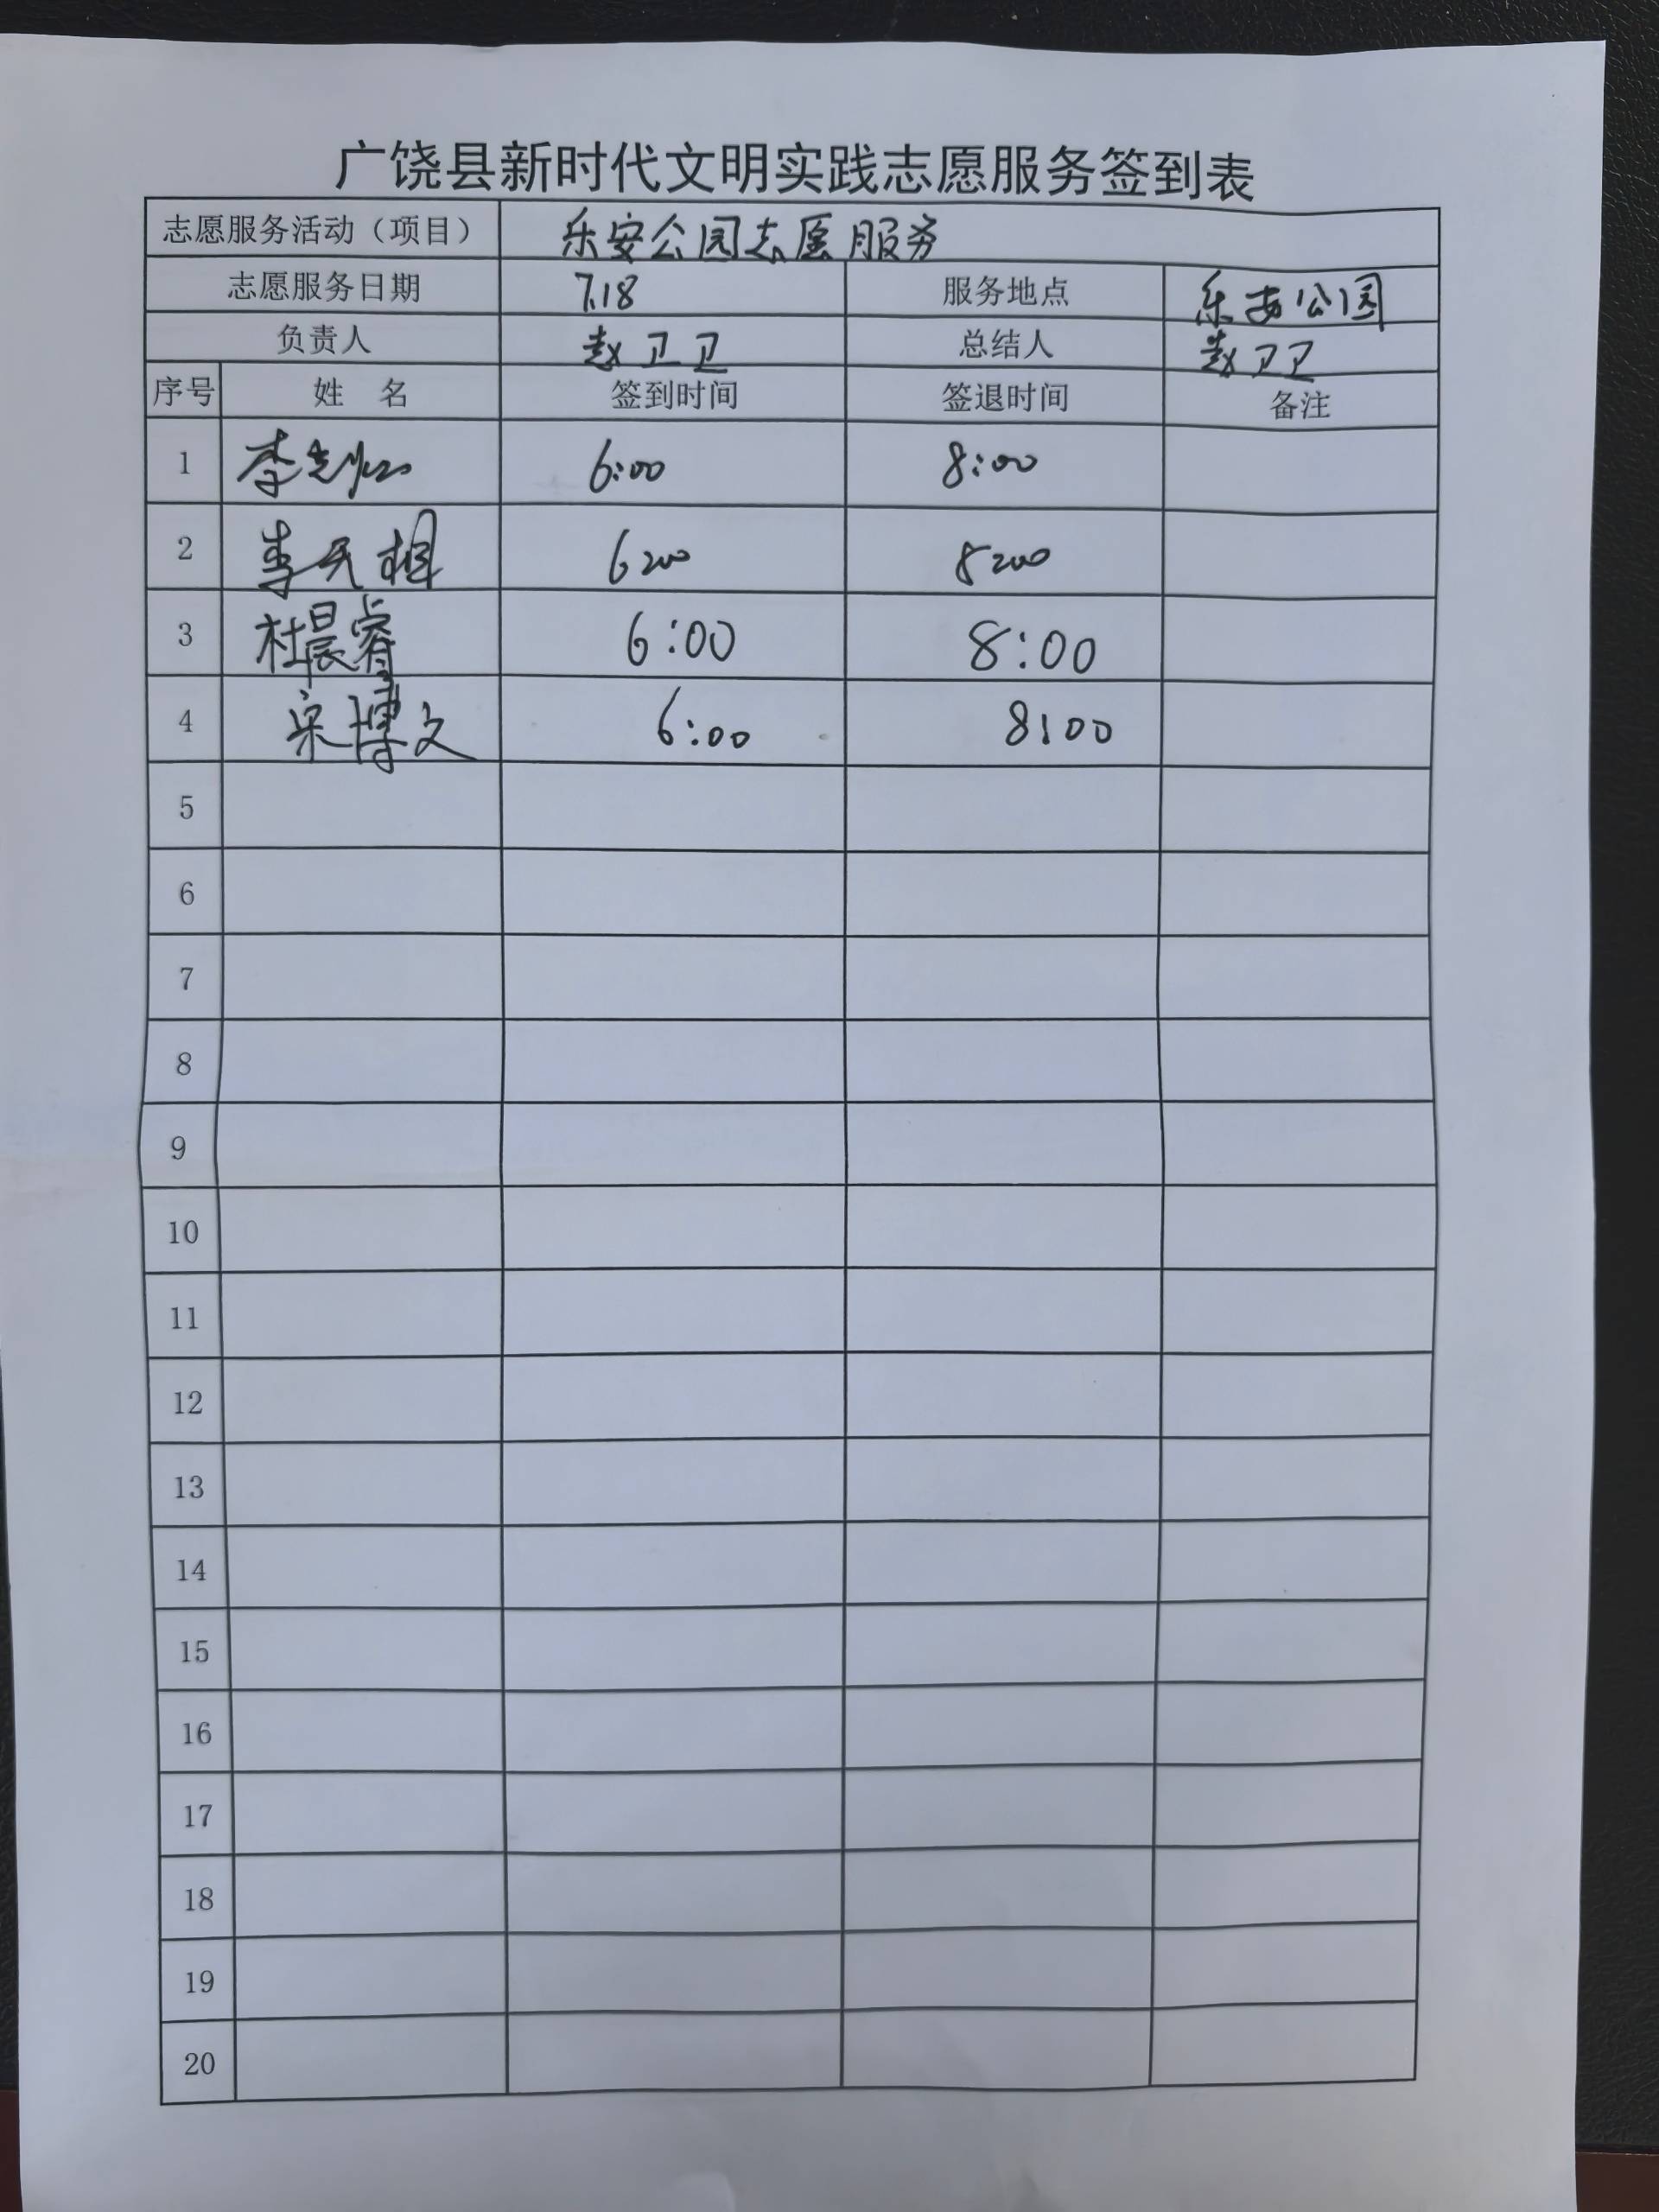 广饶县新时代文明实践志愿服务签到表
志愿服务活动（项目） 乐安公园志愿服务
志愿服务日期 7.18 服务地点 乐安公园
负责人 赵卫卫 总结人 赵卫卫
序号 姓 名 签到时间 签退时间 备注
1 李 6:00 8:00
2 李 相 6:00 8:00
3 杜晨睿 6:00 8:00
4 宋博文 6:00 8:00
5
6
7
8
9
10
11
12
13
14
15
16
17
18
19
20